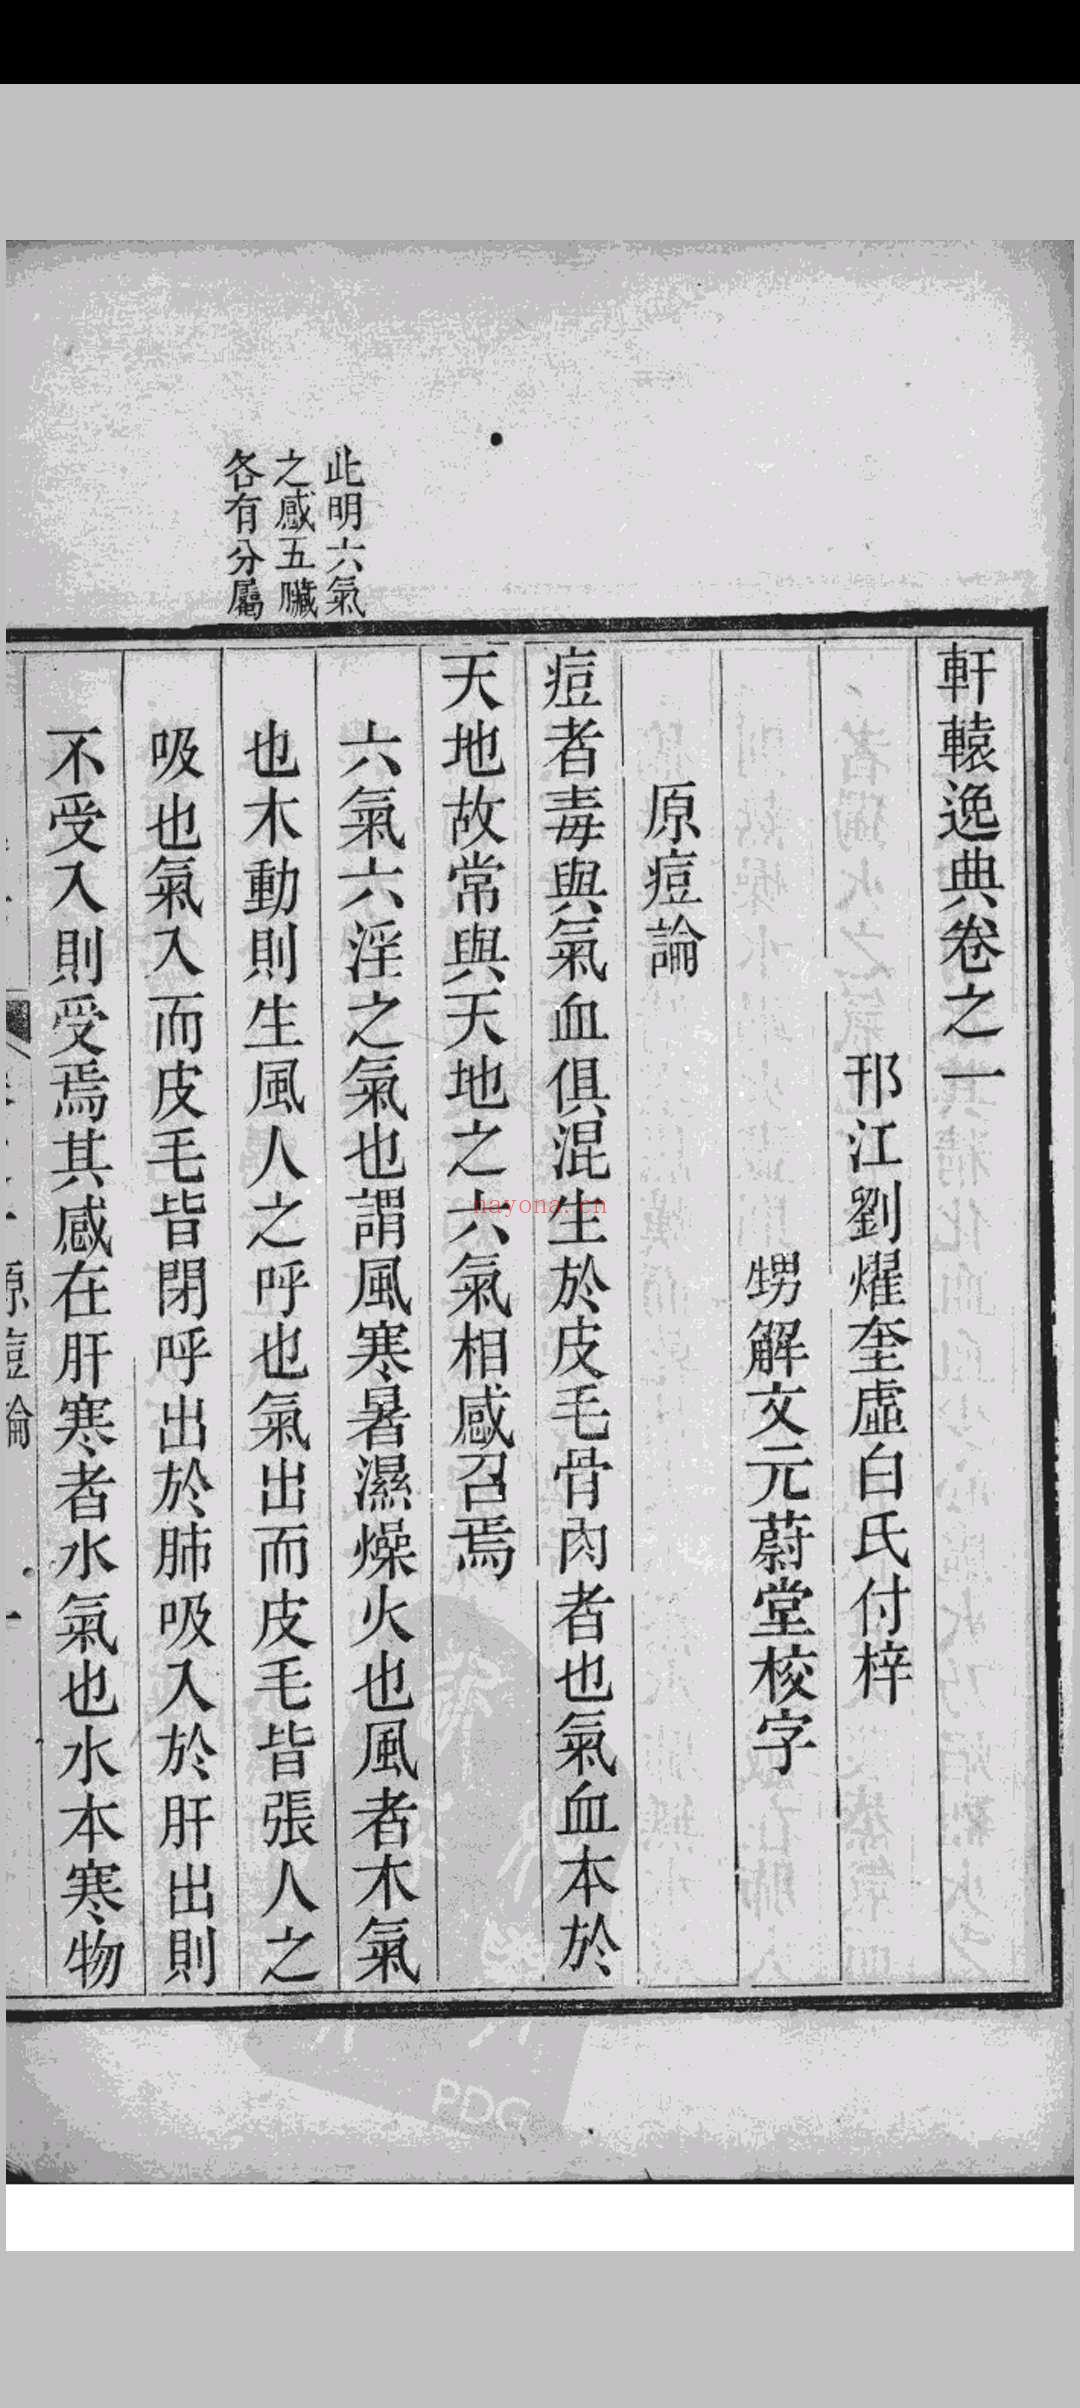 軒轅逸典卷之一
邗江劉燿奎虛白氏付梓
甥解文元蔚堂校字
原痘論
痘者毒與氣血俱混生於皮毛骨肉者也氣血本於
天地故常與天地之六氣相感召焉
此明六氣
之感五臟
各有分屬
六氣六淫之氣也謂風寒暑濕燥火也風者木氣
也木動則生風人之呼也氣出而皮毛皆張人之
吸也氣入而皮毛皆閉呼出於肺吸入於肝出則
不受入則受焉其感在肝寒者水氣也水本寒物
原痘論
nayona.cn
PDG